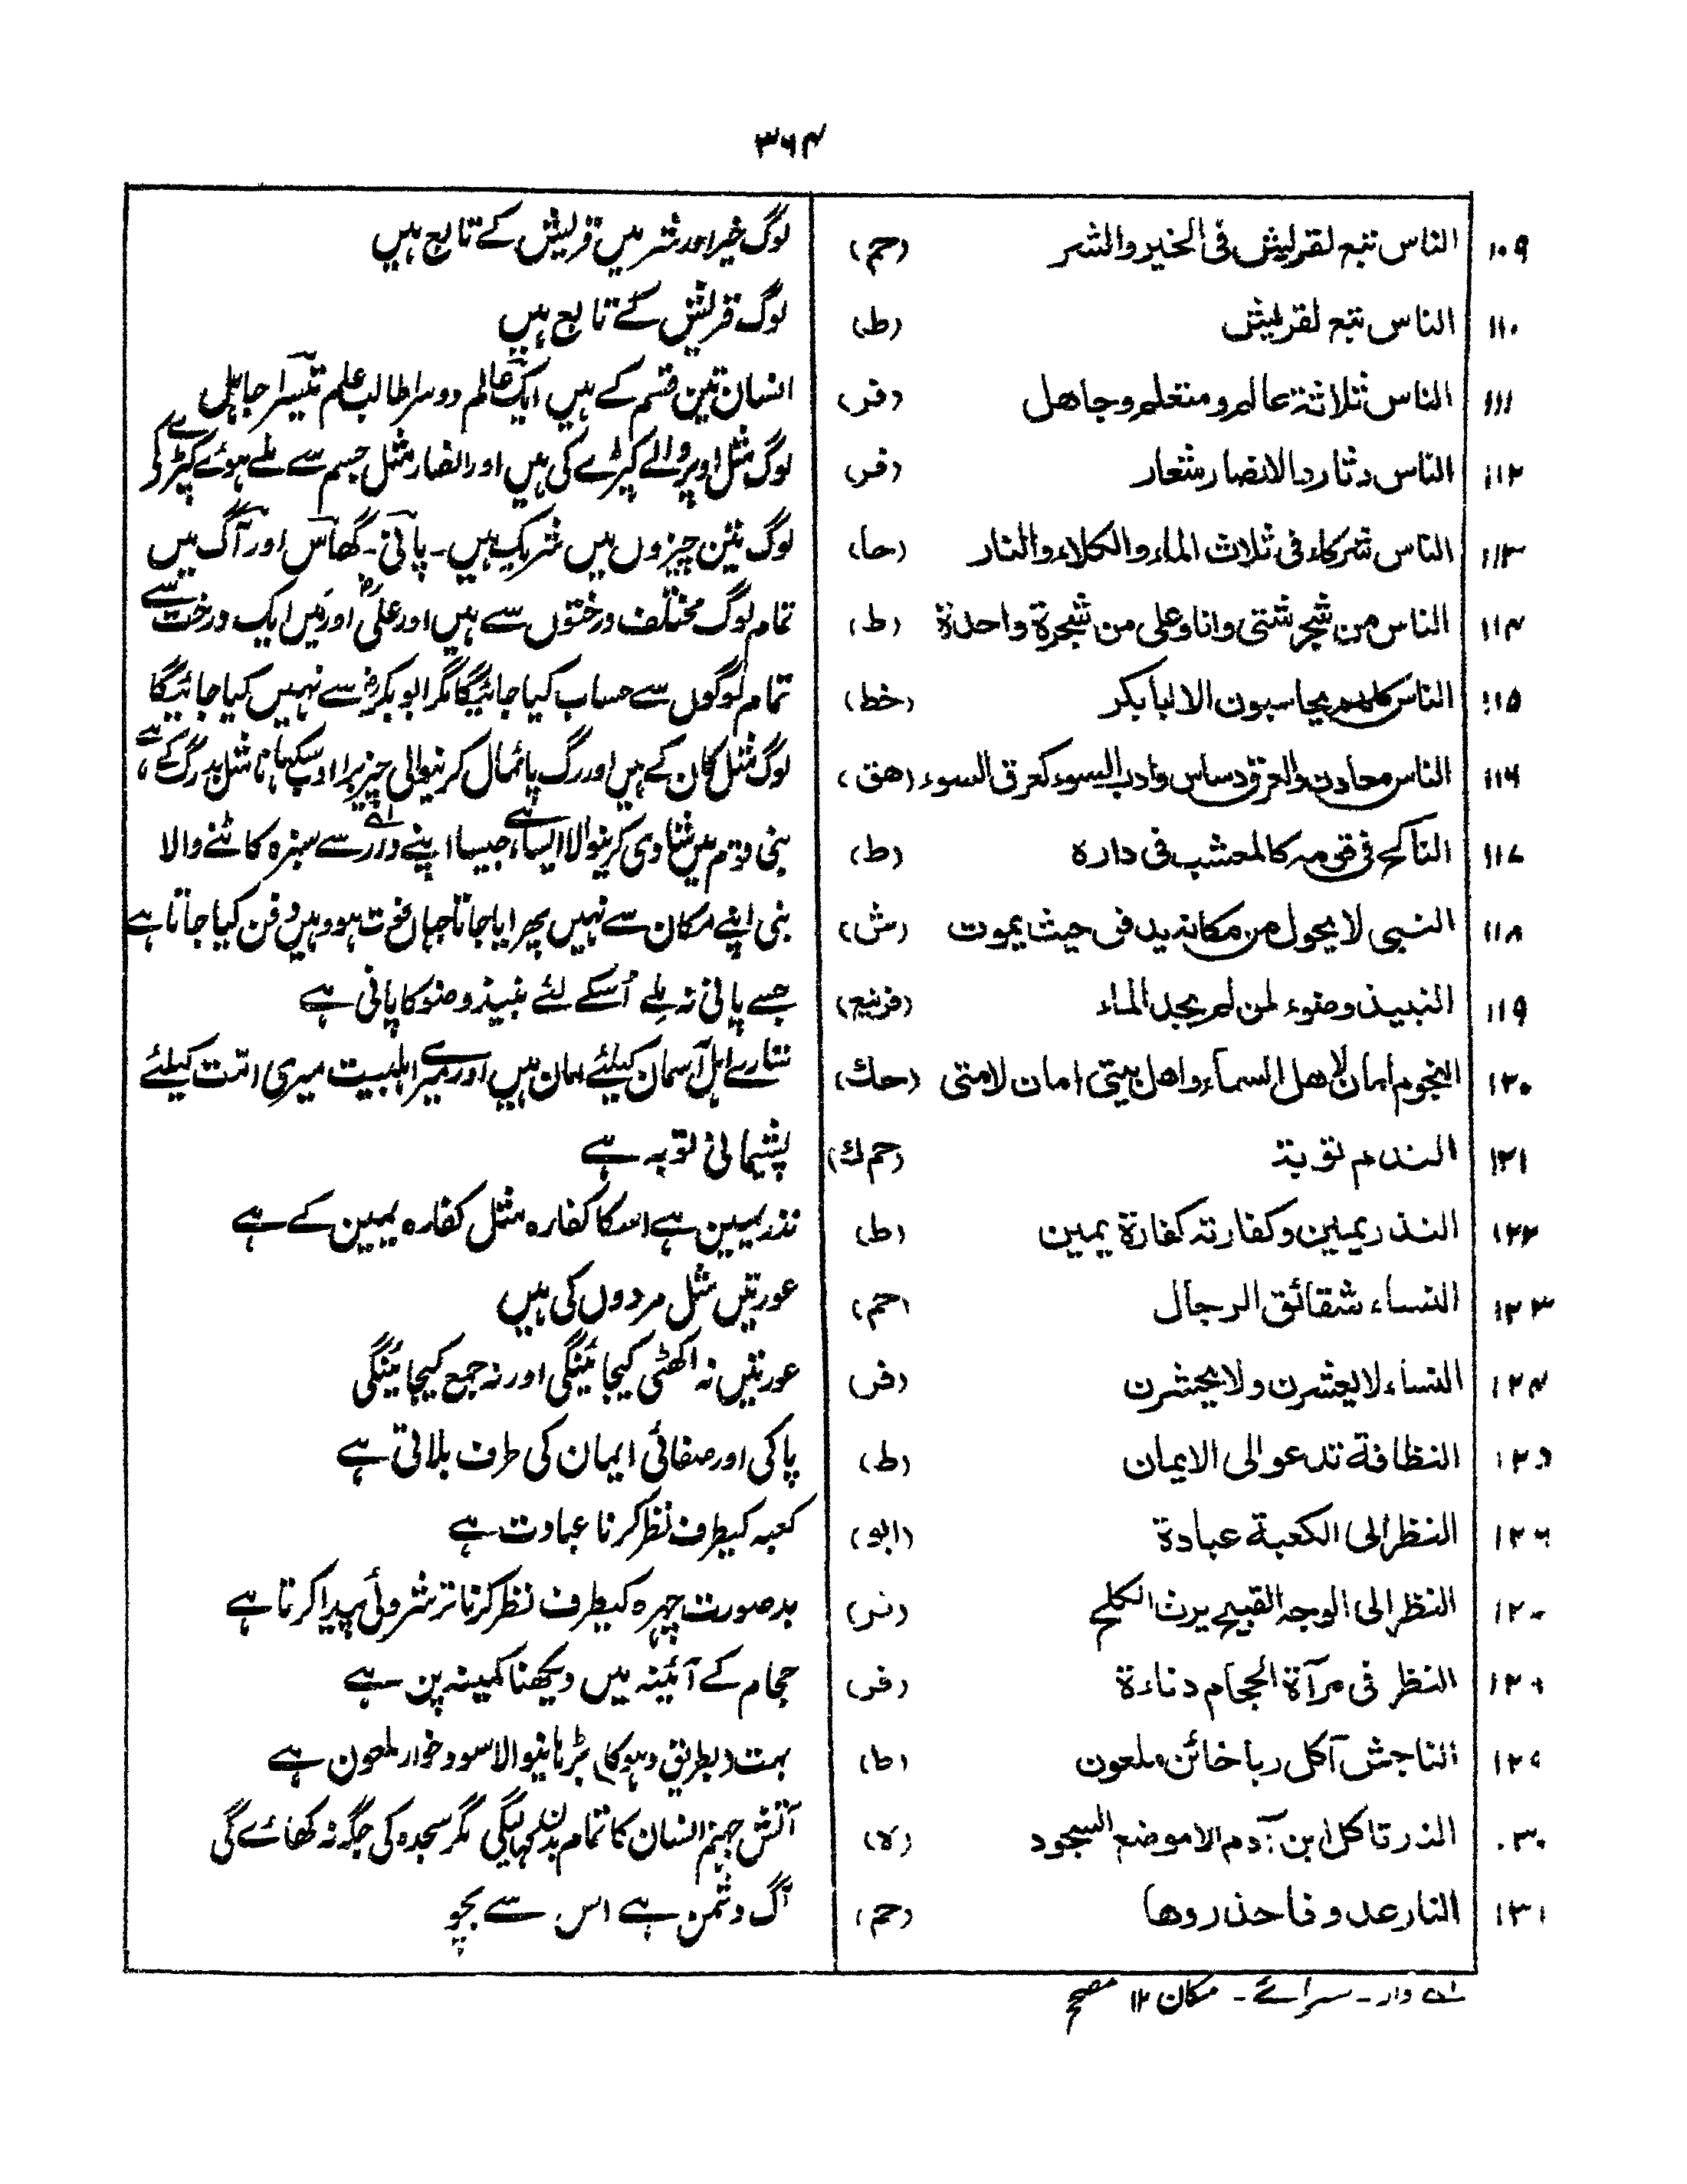 ۳۶۴
۱۰۹ الناس تبع لقریش فی الخیر والشر (حم) لوگ خیر اور شر میں قریش کے تابع ہیں
۱۱۰ الناس تبع لقریش (ط) لوگ قریش کے تابع ہیں
۱۱۱ الناس ثلاثة عالم ومتعلم وجاهل (فر) انسان تین قسم کے ہیں ایک عالم دوسرا طالب علم تیسرا جاہل
۱۱۲ الناس دثار والانصار شعار (فر) لوگ مثل اوپر والے کپڑے کی ہیں اور انصار مثل جسم سے ملے ہوئے کپڑے کی
۱۱۳ الناس شرکاء فی ثلاث الماء والکلاء والنار (حا) لوگ تین چیزوں میں شریک ہیں۔ پانی۔ گھاس اور آگ میں
۱۱۴ الناس من شجر شتی وانا وعلی من شجرة واحدة (ط) تمام لوگ مختلف درختوں سے ہیں اور علیؓ اور میں ایک درخت سے
۱۱۵ الناس کلهم یحاسبون الا ابابکر (خط) تمام لوگوں سے حساب کیا جائیگا مگر ابو بکرؓ سے نہیں کیا جائیگا
۱۱۶ الناس معادن والعرق دساس وادب السوء کعرق السوء (هق) لوگ مثل کان کے ہیں اور رگ پائمال کرنیوالی چیز برا ادب سکھانا مثل بد رگ کے ہے
۱۱۷ الناکح فی قومه کالمعشب فی داره (ط) بنی قوم میں شادی کرنیوالا ایسا ہے جیسا اپنے دار سے سبزہ کاٹنے والا
۱۱۸ النبی لا یحول من مکانه یدفن حیث یموت (ش) نبی اپنے مکان سے نہیں پھرایا جاتا جہاں فوت ہو وہیں دفن کیا جاتا ہے
۱۱۹ النبیذ وضوء لمن لم یجد الماء جسے پانی نہ ملے اُسکے لئے نبیذ وضو کا پانی ہے
۱۲۰ النجوم امان لاهل السماء واهل بیتی امان لامتی (حك) ستارے اہل آسمان کیلئے امان ہیں اور میرے اہلبیت میری امت کیلئے
۱۲۱ الندم توبة (حم ك) پشیمانی توبہ ہے
۱۲۲ النذر یمین وکفارته کفارة یمین (ط) نذر یمین ہے اسکا کفارہ مثل کفارہ یمین کے ہے
۱۲۳ النساء شقائق الرجال (حم) عورتیں مثل مردوں کی ہیں
۱۲۴ النساء لا یعشرن ولا یحشرن (فر) عورتیں نہ اکھٹی کیجائینگی اور نہ جمع کیجائینگی
۱۲۵ النظافة تدعو الی الایمان (ط) پاکی اور صفائی ایمان کی طرف بلاتی ہے
۱۲۶ النظر الی الکعبة عبادة (ابو) کعبہ کیطرف نظر کرنا عبادت ہے
۱۲۷ النظر الی الوجه القبیح یرث الکلح (فر) بدصورت چہرہ کیطرف نظر کرنا ترشروئی پیدا کرتا ہے
۱۲۸ النظر فی مرآة الحجام دناءة (فر) حجام کے آئینہ میں دیکھنا کمینہ پن ہے
۱۲۹ الناجش آکل ربا خائن ملعون (ط) بہت (بطریق دہوکا) بڑہانیوالا سود خوار ملعون ہے
۱۳۰ النار تاکل ابن آدم الا موضع السجود (ه) آتش جہنم انسان کا تمام بدن کہا لیگی مگر سجدہ کی جگہ نہ کھائے گی
۱۳۱ النار عدو فاحذروها (حم) آگ دشمن ہے اس سے بچو
لے دار۔ سرائے۔ مکان ۱۲ مصحح